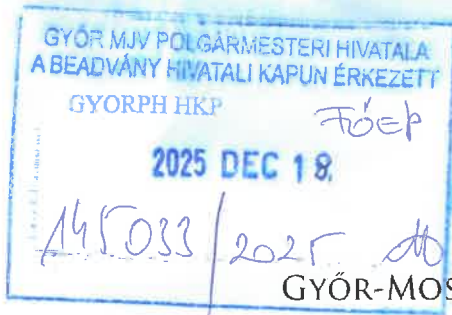 GYŐR MJV POLGÁRMESTERI HIVATALA
A BEADVÁNY HIVATALI KAPUN ÉRKEZETT
GYORPH HKP
FŐÉP
2025 DEC 18.
145033/2025
GYŐR-MOS